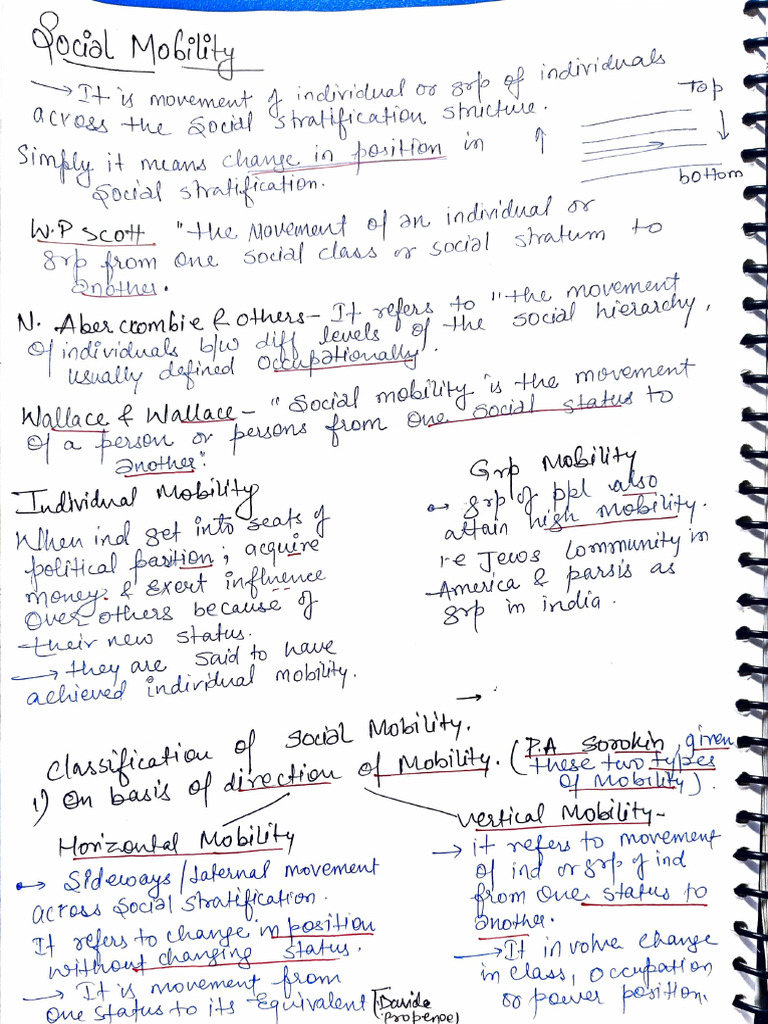 Social Mobility
→ It is movement of individual or grp of individuals
across the social stratification structure.
Top
bottom
Simply it means change in position in
social stratification.
W.P Scott "the movement of an individual or
grp from one social class or social stratum to
another.
N. Abercrombie & others- It refers to "the movement
of individuals b/w diff levels of the social hierarchy,
usually defined occupationally".
Wallace & Wallace- "Social mobility is the movement
of a person or persons from one social status to
another".
Individual Mobility
When ind get into seats of
political position; acquire
money & exert influence
over others because of
their new status.
→ they are said to have
achieved individual mobility.
Grp Mobility
grp of ppl also
attain high mobility.
i.e Jews community in
America & parsis as
grp in india.
→
Classification of Social Mobility.
1) On basis of direction of Mobility. (P.A Sorokin given
these two types
of Mobility).
Horizontal Mobility
Sideways/lateral movement
across social stratification.
It refers to change in position
without changing status.
→ It is movement from
one status to its equivalent
Vertical Mobility-
→ it refers to movement
of ind or grp of ind
from one status to
another.
→ It involve change
in class, occupation
or power position.